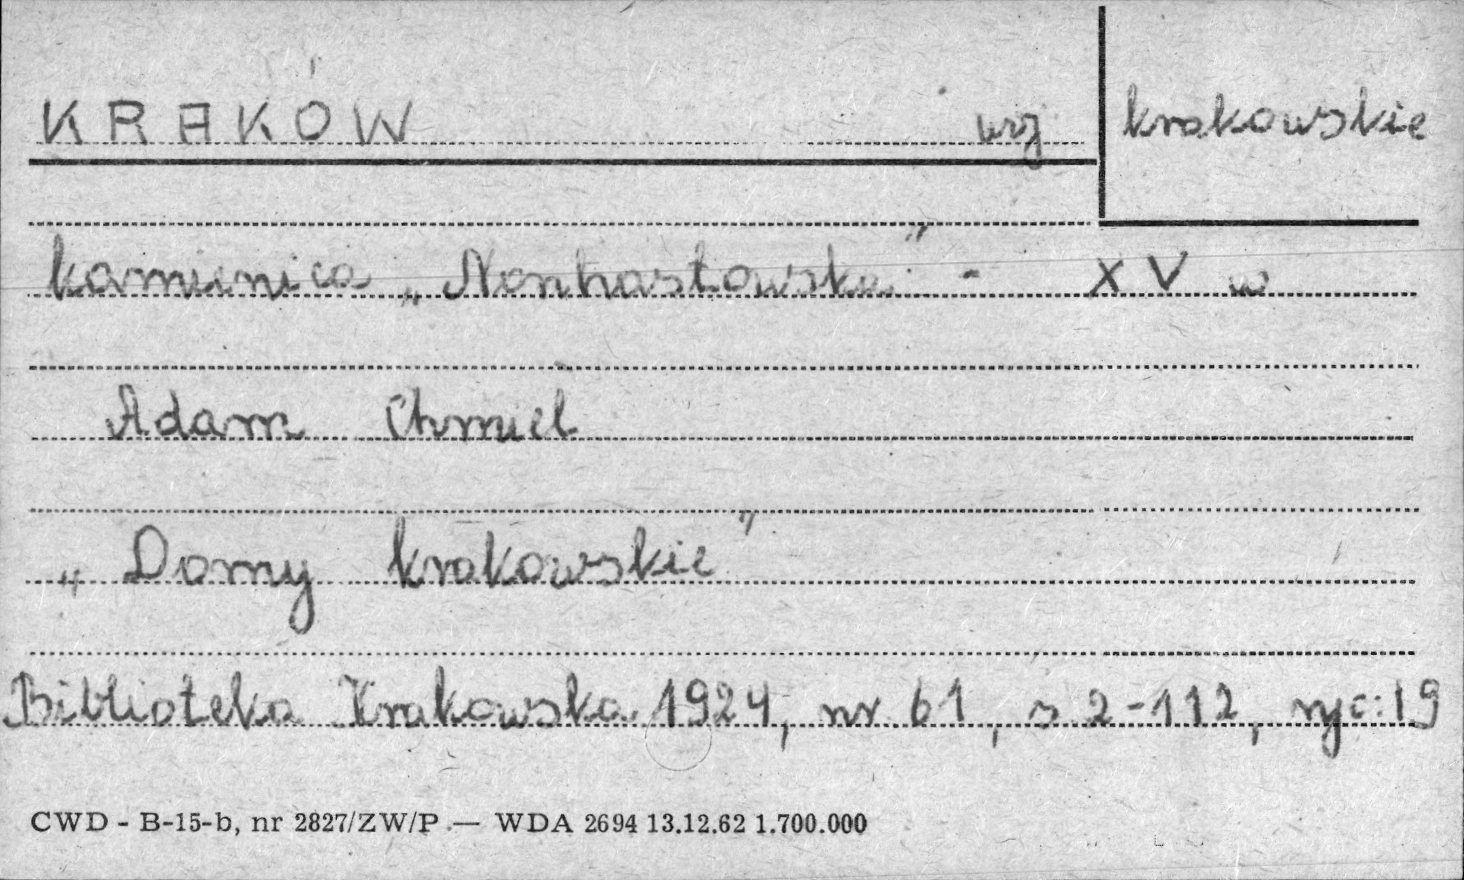 KRAKÓW woj krakowskie
kamienica „Nonhartowska" - XV w
Adam Chmiel
„Domy krakowskie"
Biblioteka Krakowska 1924, nr 61, s 2-112, ryc: 19
CWD - B-15-b, nr 2827/ZW/P — WDA 2694 13.12.62 1.700.000